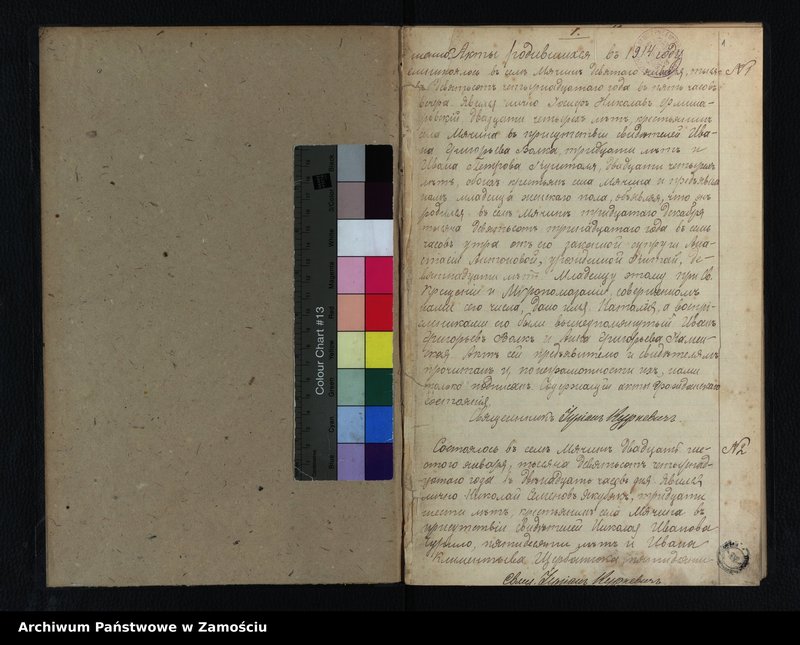 1.
Акты родившихся въ 1914 году
Состоялось въ селѣ Мячинѣ девятаго января, тыся- №1
ча девятьсотъ четырнадцатаго года въ пять часовъ
вечера. Явился лично Іосифъ Николаевъ
двадцати четырехъ лѣтъ, крестьянинъ
села Мячина въ присутствіи свидѣтелей Ива-
на Григорьева Волка, тридцати лѣтъ и
Ивана Петрова двадцати четырехъ
лѣтъ, обоихъ крестьянъ села Мячина и предъявилъ
намъ младенца женскаго пола, объявляя, что онъ
родился въ селѣ Мячинѣ тридцатаго декабря
тысяча девятьсотъ тринадцатаго года въ семь
часовъ утра отъ его законной супруги Ана-
стасіи Антоновой, урожденной де-
вятнадцати лѣтъ. Младенцу этому при Св.
Крещеніи и Мѵропомазаніи, совершенномъ
нами сего числа, дано имя Наталія, а воспрі-
емниками его были вышеупомянутый Иванъ
Григорьевъ Волкъ и Анна Григорьева Камен-
ская. Актъ сей предъявителю и свидѣтелямъ
прочитанъ и, по неграмотности ихъ, нами
только подписанъ. Содержащій акты гражданскаго
состоянія
Священникъ
Состоялось въ селѣ Мячинѣ двадцать ше- №2
стого января, тысяча девятьсотъ четырнад-
цатаго года въ двѣнадцать часовъ дня. Явился
лично Николай Семеновъ тридцати
шести лѣтъ, крестьянинъ села Мячина въ
присутствіи свидѣтелей Николая Иванова
пятидесяти лѣтъ и Ивана
Климентьева Щербатюка
Свящ.
Colour Chart #13
Blue Cyan Green Yellow Red Magenta White 3/Color Black
Archiwum Państwowe w Zamościu